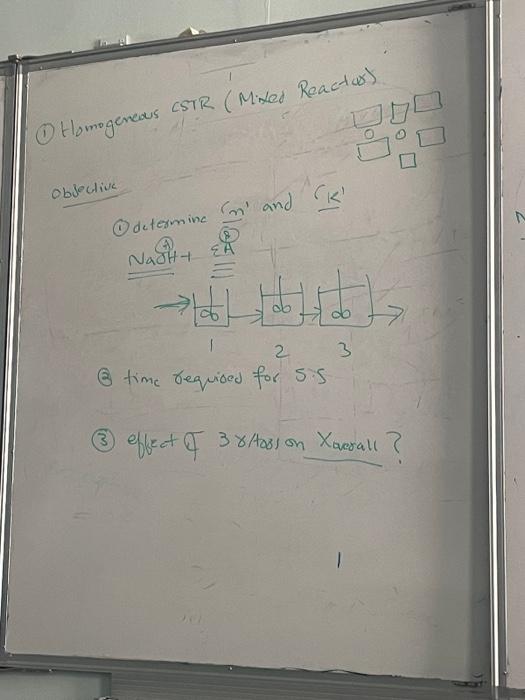 ① Homogeneous CSTR (Mixed Reactor)
Objective
① determine 'n' and 'K'
A B
NaOH + EA
1 2 3
② time required for S.S
③ effect of 3 r/tors on Xoverall ?